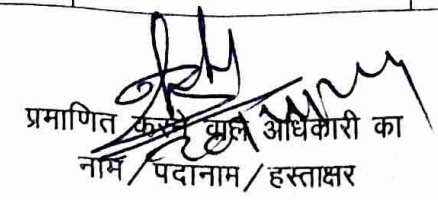 प्रमाणित करने वाले अधिकारी का
नाम / पदानाम / हस्ताक्षर